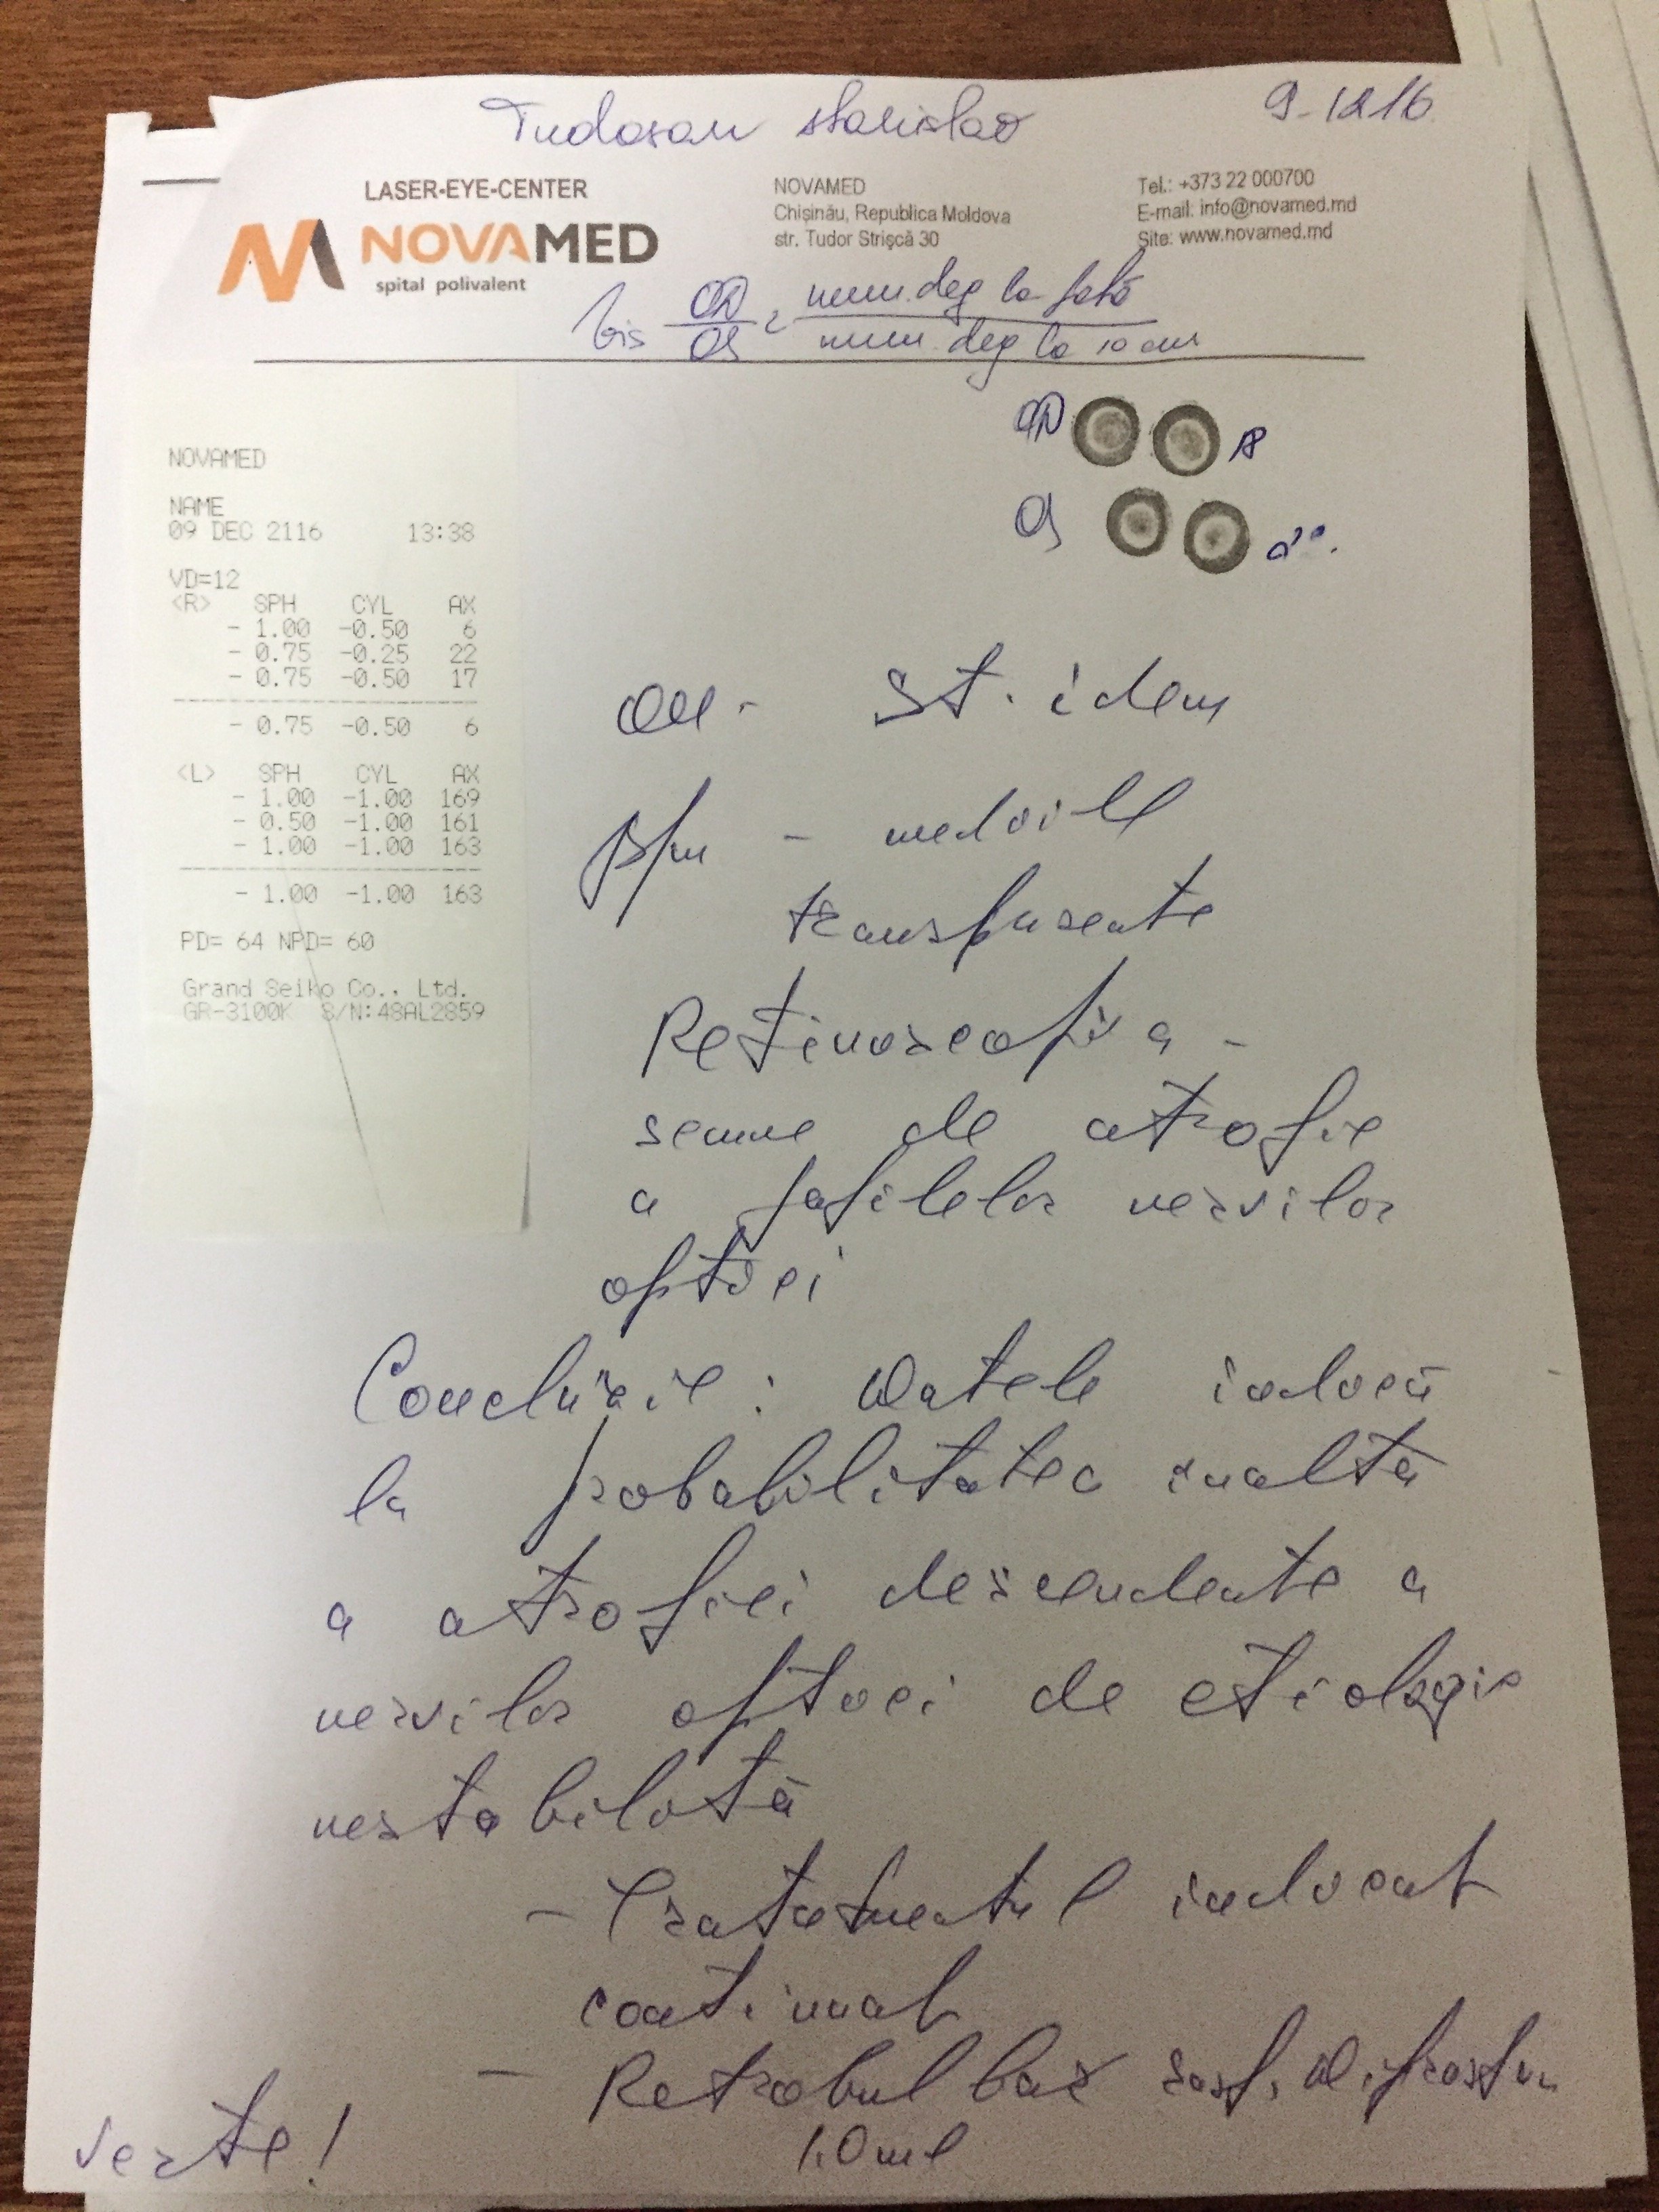 Tudosan Stanislav 9.12 16
LASER-EYE-CENTER
NOVAMED
spital polivalent
NOVAMED
Chișinău, Republica Moldova
str. Tudor Strișcă 30
Tel.: +373 22 000700
E-mail: info@novamed.md
Site: www.novamed.md
Vis OD = num. deg la față
OS num. deg la 10 cm
OD 18
OS
NOVAMED
NAME
09 DEC 2116 13:38
VD=12
<R> SPH CYL AX
- 1.00 -0.50 6
- 0.75 -0.25 22
- 0.75 -0.50 17
- 0.75 -0.50 6
<L> SPH CYL AX
- 1.00 -1.00 169
- 0.50 -1.00 161
- 1.00 -1.00 163
- 1.00 -1.00 163
PD= 64 NPD= 60
Grand Seiko Co., Ltd.
GR-3100K S/N:48AL2859
OU - St. idem
Bm - mediile
transparente
Retinoscopia -
semne de atrofie
a papilelor nervilor
optici
Concluzie: Datele indică
la probabilitatea înaltă
a atrofiei descendente a
nervilor optici de etiologie
nestabilită
- Tratamentul indicat
continuat
- Retrobulbar sosp. Diprospan
1.0 ml
verte!